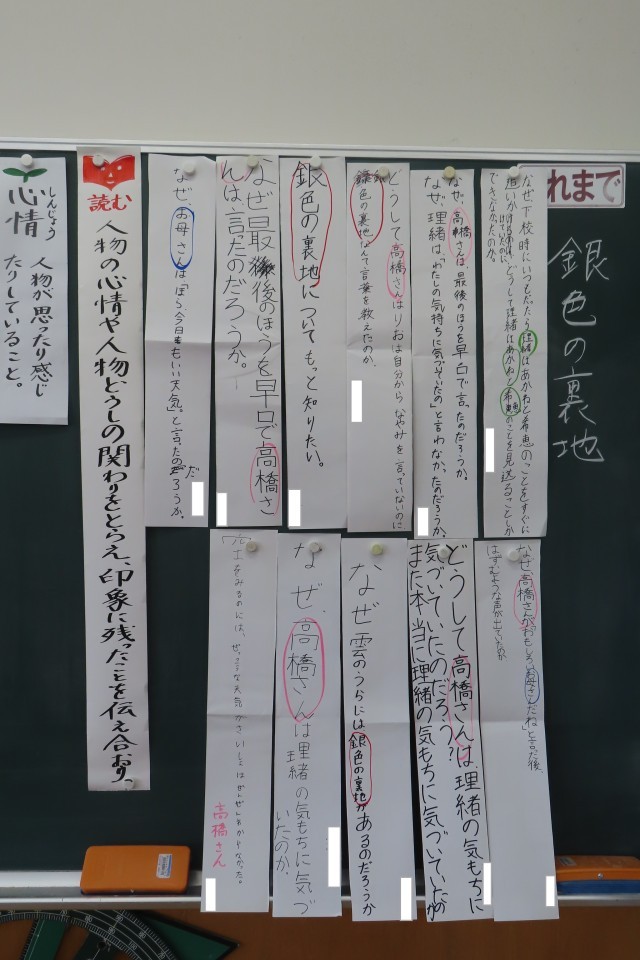 れまで
銀色の裏地
なぜ下校時にいつもだったら理緒はあかねと希恵のことをすぐに
追いかけるはずなのに、どうして理緒はあかねと希恵のことを見送ることしか
できなかったのか。
なぜ、高橋さんは、最後のほうを早口で言ったのだろうか。
なぜ、理緒は、「わたしの気持ちに気づいていたの」と言わなかったのだろうか。
どうして高橋さんはりおは自分からなやみを言っていないのに
銀色の裏地なんて言葉を教えたのか。
銀色の裏地についてもっと知りたい。
なぜ最後のほうを早口で高橋さ
んは言たのだろうか。
なぜ、お母さんは「ほら、今日もいい天気。」と言ったのだろうか。
読む
人物の心情や人物どうしの関わりをとらえ、印象に残ったことを伝え合おう。
しんじょう
心情
人物が思ったり感じ
たりしていること。
なぜ高橋さんが「おもしろいお母さんだね」と言った後
はずむような声が出ていたのか
どうして高橋さんは、理緒の気もちに
気づいていたのだろう?
また本当に理緒の気もちに気づいていたのか
なぜ雲のうらには銀色の裏地があるのだろうか
なぜ、高橋さんは理緒の気もちに気づ
いたのか、
高橋さん